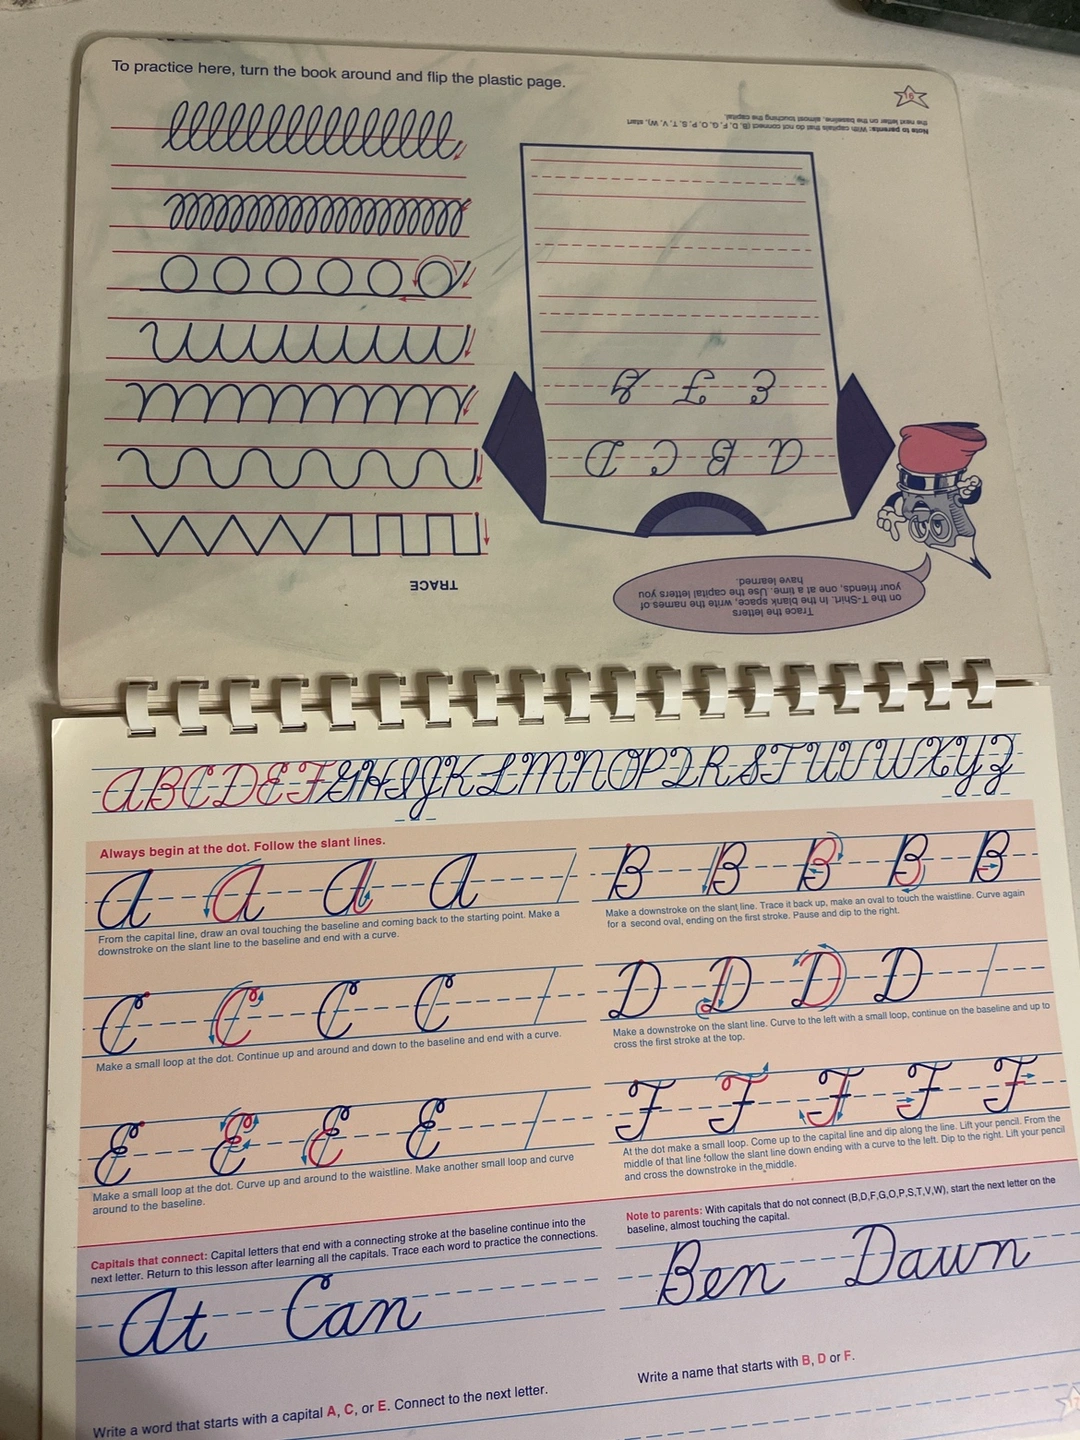 To practice here, turn the book around and flip the plastic page.
16
Note to parents: With capitals that do not connect (B, D, F, G, O, P, S, T, V, W), start
the next letter on the baseline, almost touching the capital.
A B C D
E F G
Trace the letters
on the T-Shirt. In the blank space, write the names of
your friends, one at a time. Use the capital letters you
have learned.
TRACE
A B C D E F G H I J K L M N O P Q R S T U V W X Y Z
Always begin at the dot. Follow the slant lines.
A A A A
From the capital line, draw an oval touching the baseline and coming back to the starting point. Make a
downstroke on the slant line to the baseline and end with a curve.
B B B B B
Make a downstroke on the slant line. Trace it back up, make an oval to touch the waistline. Curve again
for a second oval, ending on the first stroke. Pause and dip to the right.
C C C C
Make a small loop at the dot. Continue up and around and down to the baseline and end with a curve.
D D D D
Make a downstroke on the slant line. Curve to the left with a small loop, continue on the baseline and up to
cross the first stroke at the top.
E E E E
Make a small loop at the dot. Curve up and around to the waistline. Make another small loop and curve
around to the baseline.
F F F F F
At the dot make a small loop. Come up to the capital line and dip along the line. Lift your pencil. From the
middle of that line follow the slant line down ending with a curve to the left. Dip to the right. Lift your pencil
and cross the downstroke in the middle.
Capitals that connect: Capital letters that end with a connecting stroke at the baseline continue into the
next letter. Return to this lesson after learning all the capitals. Trace each word to practice the connections.
At Can
Write a word that starts with a capital A, C, or E. Connect to the next letter.
Note to parents: With capitals that do not connect (B,D,F,G,O,P,S,T,V,W), start the next letter on the
baseline, almost touching the capital.
Ben Dawn
Write a name that starts with B, D or F.
17